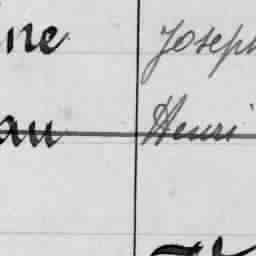 ine Joseph
au Henri